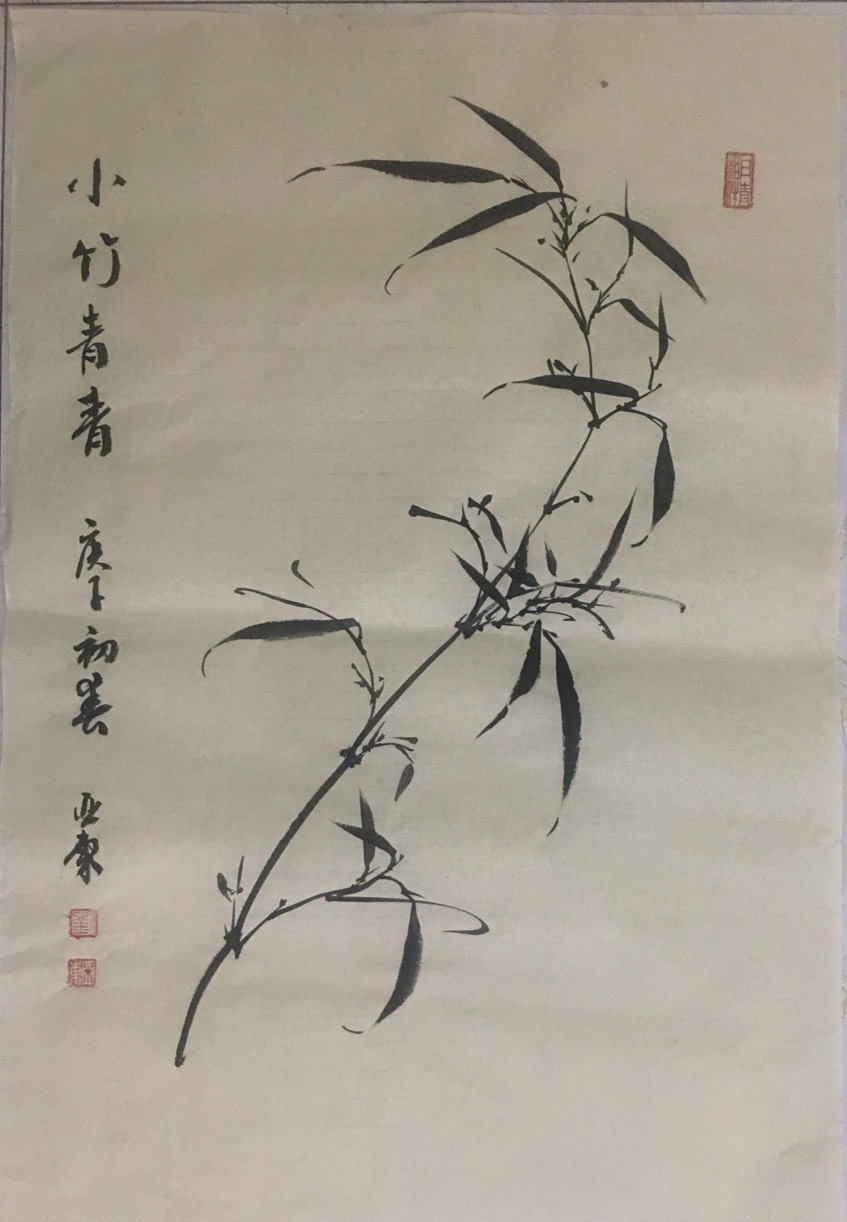 小竹青青 庚子初春 亚东